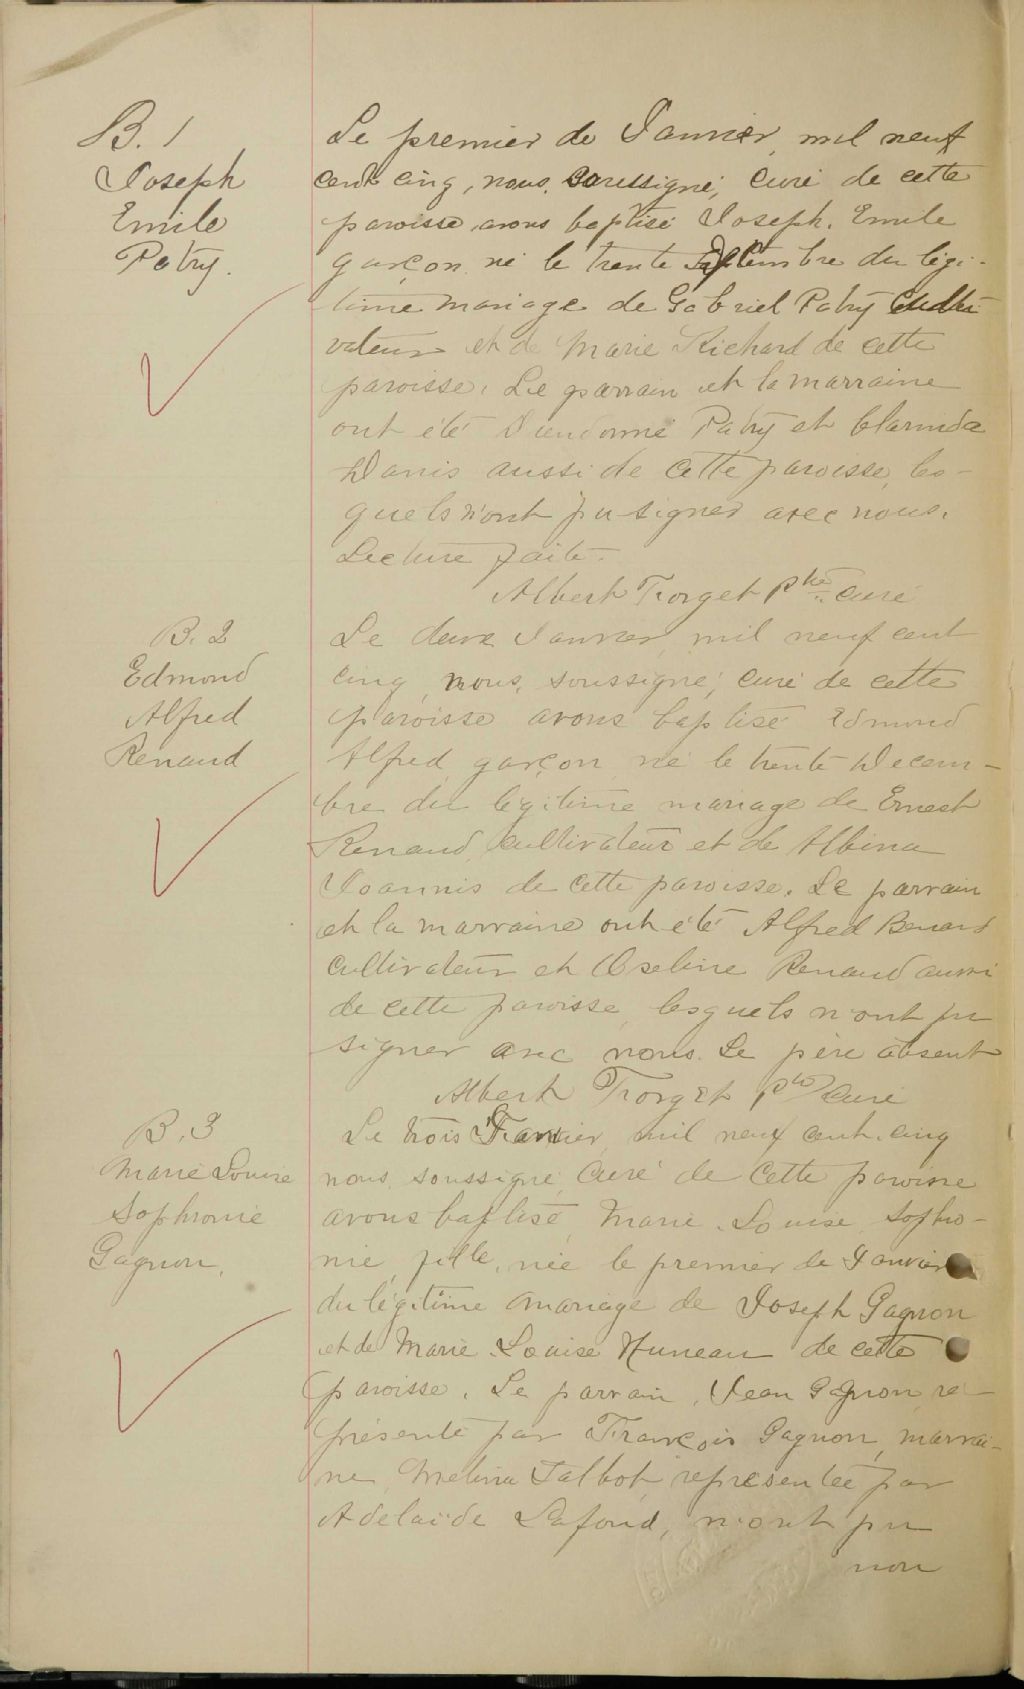 B. 1
Joseph
Emile
Patry.
Le premier de Janvier, mil neuf
cent cinq, nous, soussigné, curé de cette
paroisse avons baptisé Joseph, Emile
garçon né le trente Septembre du légi-
time mariage de Gabriel Patry Culti
vateur et de Marie Richard de cette
paroisse. Le parrain et la marraine
ont été Dieudonné Patry et Clarinda
Danis aussi de cette paroisse, les-
quels n'ont pu signer avec nous.
Lecture faite.
Albert Forget Ptre curé
B. 2
Edmond
Alfred
Renaud
Le deux Janvier, mil neuf cent
cinq, nous, soussigné, curé de cette
paroisse avons baptisé Edmond
Alfred, garçon, né le trente Decem-
bre du légitime mariage de Ernest
Renaud, cultivateur et de Albina
Joannis de cette paroisse. Le parrain
et la marraine ont été Alfred
cultivateur et Renaud aussi
de cette paroisse, lesquels n'ont pu
signer avec nous. Le père absent
Albert Forget Ptre curé
B. 3
Marie Louise
Sophronie
Gagnon.
Le trois Janvier, mil neuf cent, cinq
nous, soussigné, curé de cette paroisse
avons baptisé, Marie, Louise, Sophro-
nie, fille, née le premier de Janvier
du légitime mariage de Joseph Gagnon
et de Marie Louise Huneau de cette
paroisse. Le parrain, Jean Gagnon re-
présenté par François Gagnon, marrai-
ne, Melina Talbot, représentée par
Adelaïde Lafond, n'ont pu
non